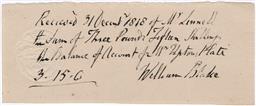 Received 31 Decembr 1818 of Mr Linnell
the Sum of Three Pounds Fifteen Shillings
the Balance of Account for Mr Uptons Plate
3.15.0 William Blake